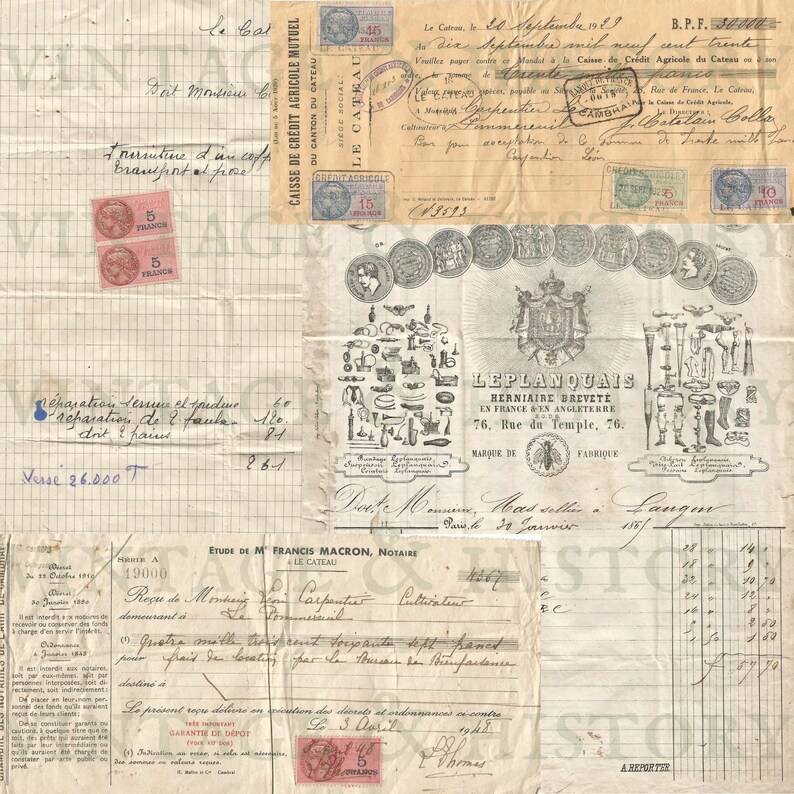 Le Cat
Doit Monsieur C
Fourniture d'un coff
transport et pose
5
FRANCS
5
FRANCS
réparation serrure et soudure 60
réparation de 2 120
doit 2 paires 81
261
Versé 26.000
CAISSE DE CRÉDIT AGRICOLE MUTUEL
(Loi du 5 Août 1920)
DU CANTON DU CATEAU
SIÈGE SOCIAL:
LE CATEAU
Le Cateau, le 20 Septembre 1929 B. P. F. 30000
Au dix septembre mil neuf cent trente
Veuillez payer contre ce Mandat à la Caisse de Crédit Agricole du Cateau ou à son
ordre, la somme de trente mille francs
Valeur reçue en espèces, payable au Siège de la Société, 25, Rue de France, Le Cateau,
A Monsieur Carpentier Pour la Caisse de Crédit Agricole,
LE DIRECTEUR:
Cultivateur à Pommereuil
Bon pour acceptation de la somme de trente mille fran
Carpentier Léon
N3593
LE CATEAU
BANQUE DE FRANCE
CAMBRAI
CRÉDIT AGRICOLE
15
FRANCS
CRÉDIT AGRICOLE
20 SEPT 1929
5
FRANCS
10
FRANCS
15
FRANCS
LEPLANQUAIS
HERNIAIRE BREVETÉ
EN FRANCE & EN ANGLETERRE
S.G.D.G.
76, Rue du Temple, 76.
MARQUE DE FABRIQUE
Bandage Leplanquais,
Suspensoir Leplanquais,
Ceinture Leplanquais.
Biberon Leplanquais,
Tire-Lait Leplanquais,
Pessaire Leplanquais.
Doit Monsieur Mas sellier à Langon
Paris, le 20 Janvier 1865
28 " 14 "
32 " 10 70
24 " 12 "
16 " 8 "
5 " 2 50
1 50 1 50
f 57 70
A REPORTER
CHAMBRE DES NOTAIRES DE L'ARRt DE CAMBRAI
Décret
du 22 Octobre 1910
Décret
30 Janvier 1890
Il est interdit aux notaires de
recevoir ou conserver des fonds
à charge d'en servir l'intérêt.
Ordonnance
4 Janvier 1843
Il est interdit aux notaires,
soit par eux-mêmes, soit par
personnes interposées, soit di-
rectement, soit indirectement :
De placer en leur nom per-
sonnel des fonds qu'ils auraient
reçus de leurs clients;
De se constituer garants ou
cautions, à quelque titre que ce
soit, des prêts qui auraient été
faits par leur intermédiaire ou
qu'ils auraient été chargés de
constater par acte public ou
privé.
SÉRIE A
19000
ETUDE DE Me FRANCIS MACRON, NOTAIRE
À LE CATEAU
4367
Reçu de Monsieur Léon Carpentier Cultivateur
demeurant à Le Pommereuil
(1) quatre mille trois cent soixante sept francs
pour frais de location par le Bureau de Bienfaisance
destiné à
Le présent reçu délivré en exécution des décrets et ordonnances ci-contre
Le 3 Avril 1948
TRÈS IMPORTANT
GARANTIE DE DÉPOT
(VOIR AU DOS)
(1) Indication au verso, si cela est nécessaire,
des sommes ou valeurs reçues.
H. Mallez et Cie Cambrai
5
FRANCS
Thomas
VINTAGE & HISTORY